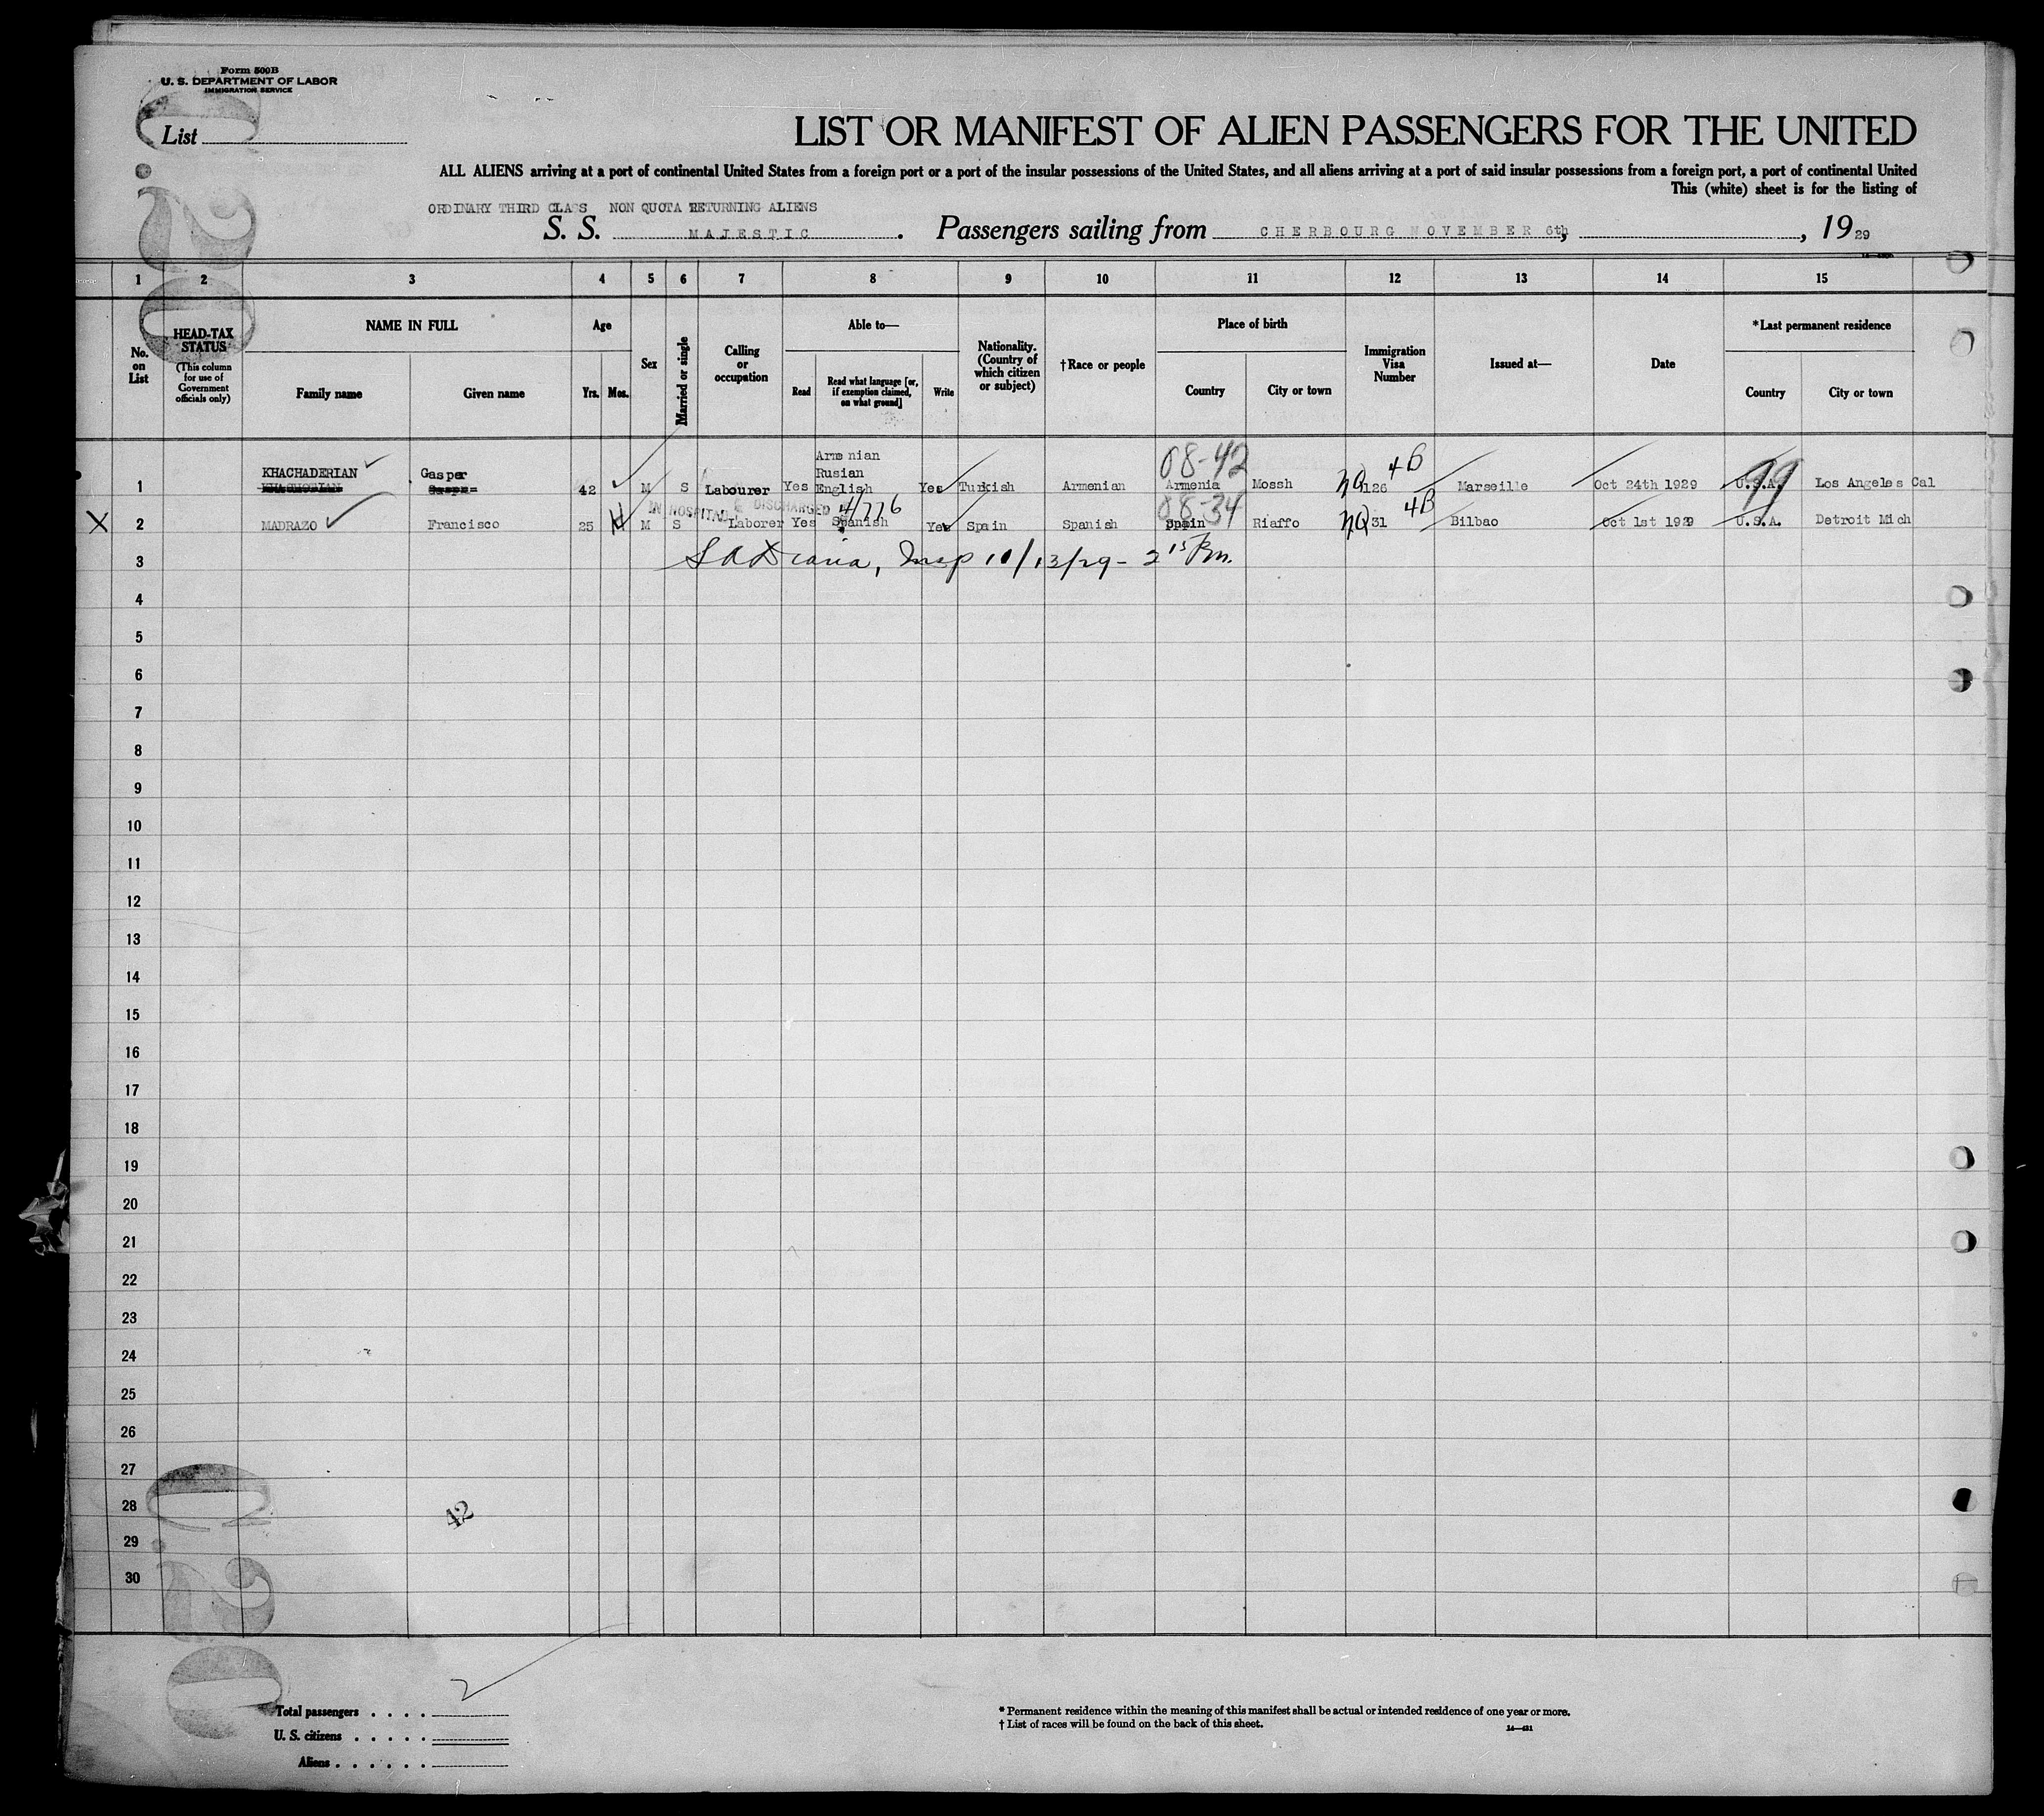 Form 500B
U. S. DEPARTMENT OF LABOR
IMMIGRATION SERVICE
List
LIST OR MANIFEST OF ALIEN PASSENGERS FOR THE UNITED
ALL ALIENS arriving at a port of continental United States from a foreign port or a port of the insular possessions of the United States, and all aliens arriving at a port of said insular possessions from a foreign port, a port of continental United
This (white) sheet is for the listing of
ORDINARY THIRD CLASS NON QUOTA RETURNING ALIENS
S. S. MAJESTIC . Passengers sailing from CHERBOURG NOVEMBER 6th, , 1929
1 2 3 4 5 6 7 8 9 10 11 12 13 14 15
No. on List
HEAD-TAX STATUS
(This column for use of Government officials only)
NAME IN FULL
Family name Given name
Age
Yrs. Mos.
Sex
Married or single
Calling or occupation
Able to—
Read Read what language [or, if exemption claimed, on what ground] Write
Nationality. (Country of which citizen or subject)
†Race or people
Place of birth
Country City or town
Immigration Visa Number
Issued at—
Date
*Last permanent residence
Country City or town
1 KHACHADERIAN Gasper 42 M S Labourer Yes Armenian Rusian English Yes Turkish Armenian 08-42 Armenia Mossh NQ 126 4B Marseille Oct 24th 1929 U.S.A. 99 Los Angeles Cal
IN HOSPITAL & DISCHARGED
X 2 MADRAZO Francisco 25 M S Laborer Yes Spanish Yes Spain Spanish 08-34 Spain Riaffo NQ 31 4B Bilbao Oct 1st 1929 U.S.A. Detroit Mich
3 Insp 10/13/29 - 2 15 Pm.
4
5
6
7
8
9
10
11
12
13
14
15
16
17
18
19
20
21
22
23
24
25
26
27
28
29
30
42
2
Total passengers . . . .
U. S. citizens . . . . .
Aliens . . . . . .
* Permanent residence within the meaning of this manifest shall be actual or intended residence of one year or more.
† List of races will be found on the back of this sheet.